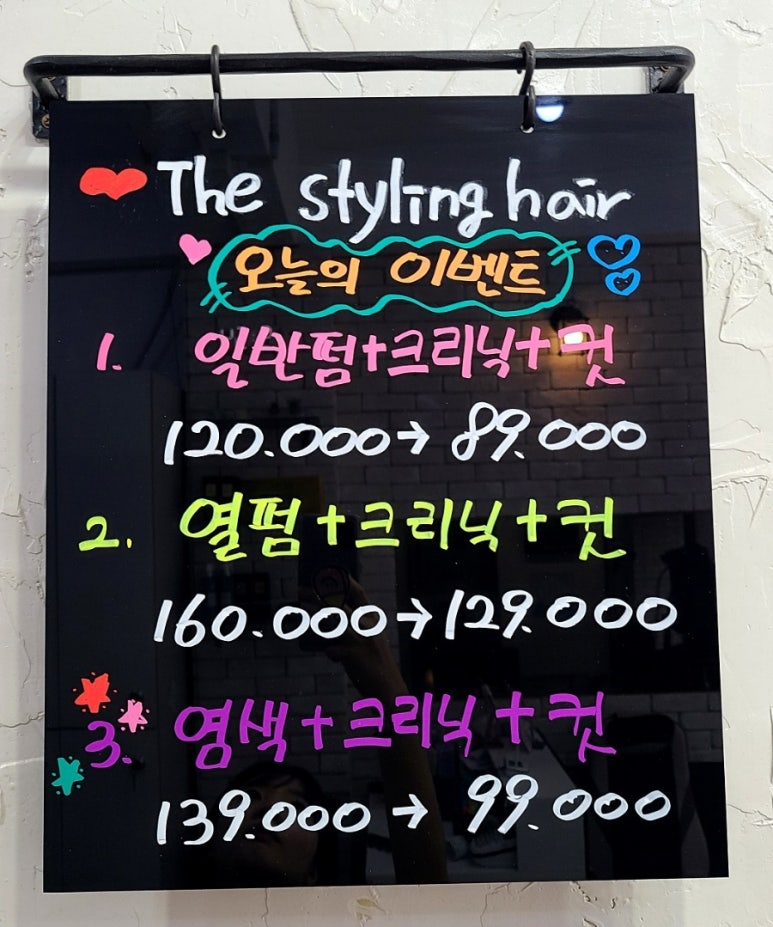 The styling hair
오늘의 이벤트
1. 일반펌+크리닉+컷
120.000→ 89.000
2. 열펌+크리닉+컷
160.000→129.000
3. 염색+크리닉+컷
139.000→ 99.000